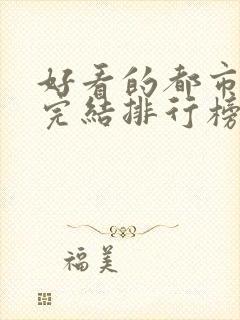 好看的都市
完结排行榜
福美